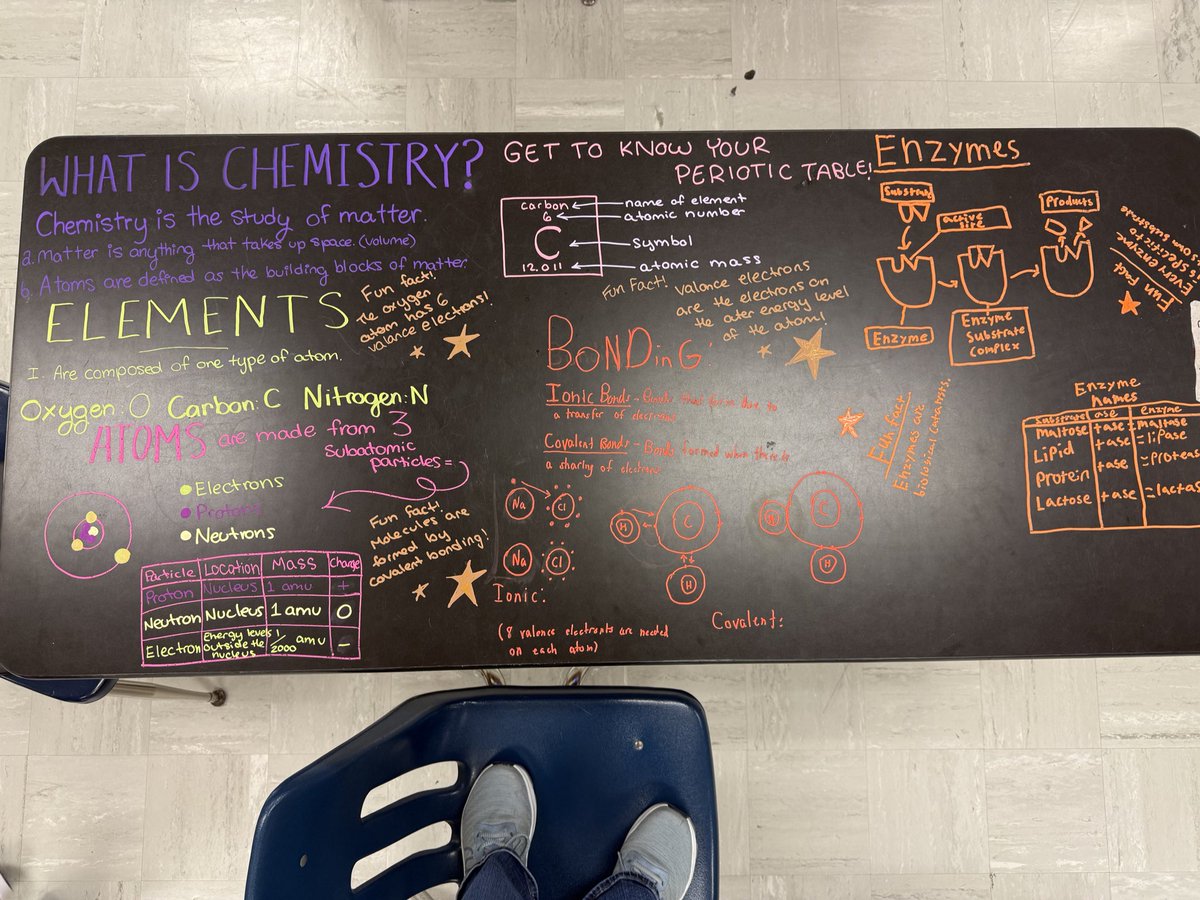 WHAT IS CHEMISTRY?
Chemistry is the study of matter.
a. matter is anything that takes up space. (volume)
b. Atoms are defined as the building blocks of matter
ELEMENTS
I. Are composed of one type of atom.
Fun fact!
The oxygen
atom has 6
valance electrons!
Oxygen: O Carbon: C Nitrogen: N
ATOMS are made from 3
subatomic
particles =
Electrons
Protons
Neutrons
Fun fact!
Molecules are
formed by
covalent bonding!
Particle Location Mass Charge
Proton Nucleus 1 amu +
Neutron Nucleus 1 amu 0
Electron Energy levels outside the nucleus 1/2000 amu -
GET TO KNOW YOUR
PERIOTIC TABLE!
carbon
6
C
12.011
name of element
atomic number
symbol
atomic mass
Fun Fact! valance electrons
are the electrons on
the outer energy level
of the atom!
BONDinG:
Ionic Bonds - Bonds that form due to
a transfer of electrons
Covalent Bonds - Bonds formed when there is
a sharing of electrons
Na Cl
Na Cl
Ionic:
(8 valence electrons are needed
on each atom)
H C
H
H C
H
Covalent:
Enzymes
Substrate
active
site
Products
Enzyme
Enzyme
Substrate
complex
Fun fact
Every enzyme
is specific to
its own substrate
Fun fact
Enzymes are
biological catalysts.
Enzyme
names
Substrate ase enzyme
Maltose + ase = maltase
Lipid + ase = lipase
Protein + ase = Proteas
Lactose + ase = lactas